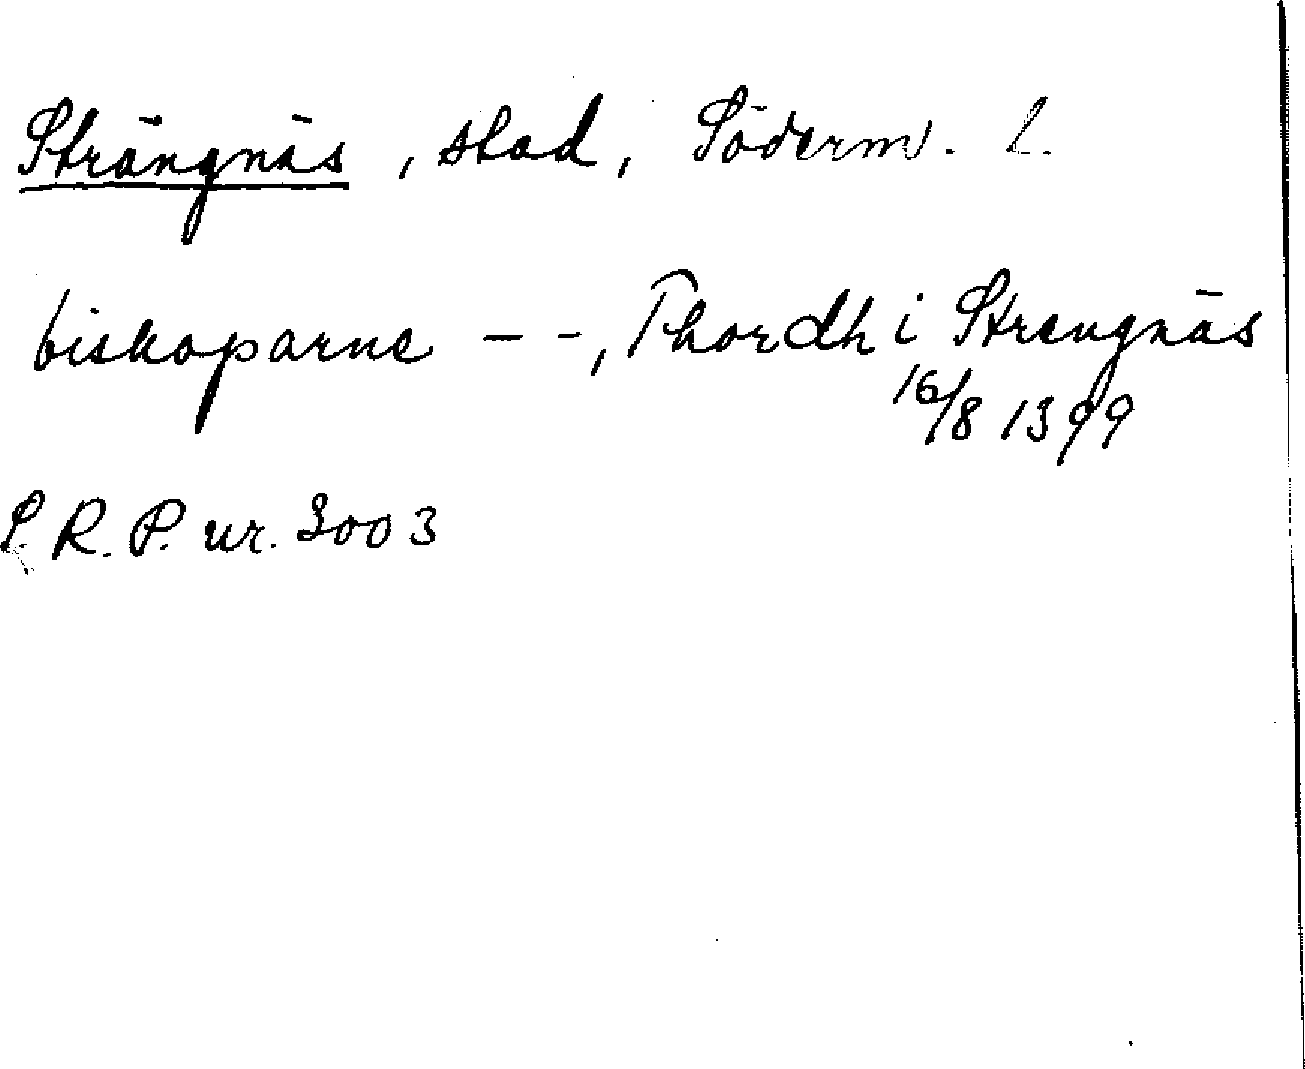 Strängnäs, stad, Söderm. L.
biskoparne - -, Thordh i Strengnäs
16/8 1399
S. R. P. nr. 3003